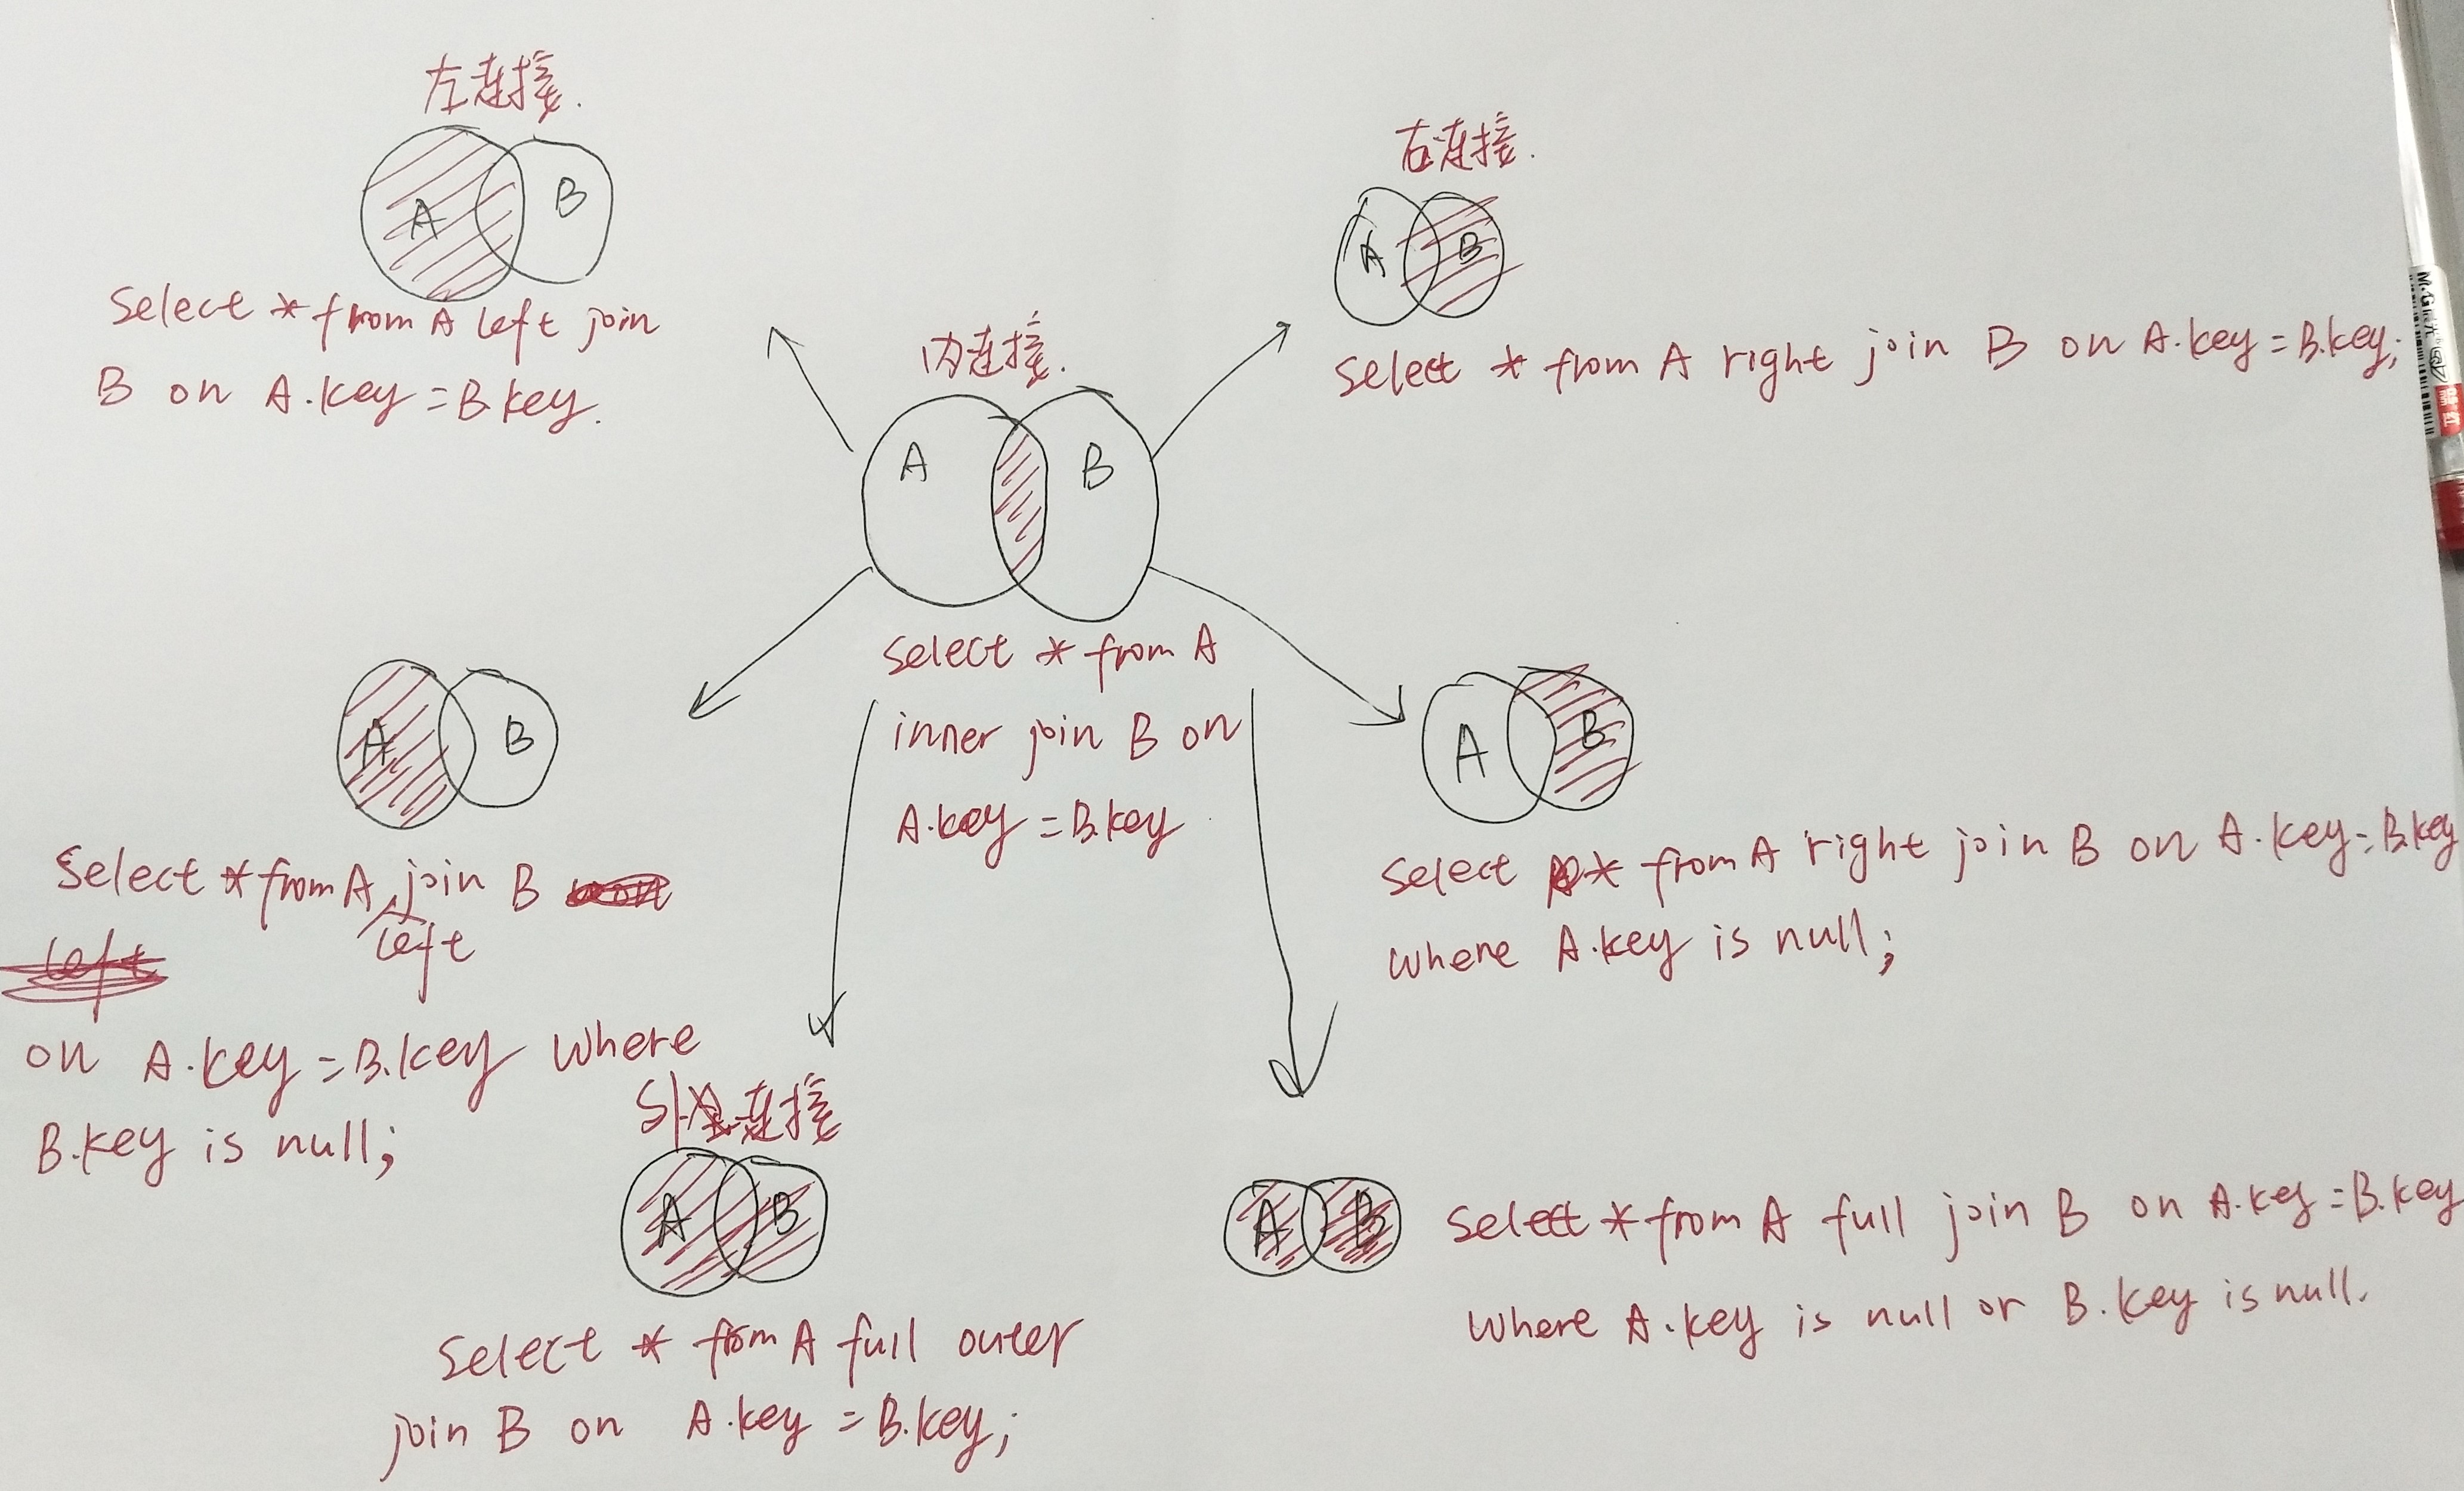 左连接.
A
B
Select * from A left join
B on A.key = B.key.
右连接.
A
B
Select * from A right join B on A.key = B.key;
内连接.
A
B
Select * from A
inner join B on
A.key = B.key
A
B
Select * from A left join B
on A.key = B.key where
B.key is null;
A
B
Select * from A right join B on A.key = B.key
where A.key is null;
外连接
A
B
Select * from A full outer
join B on A.key = B.key;
A
B
Select * from A full join B on A.key = B.key
where A.key is null or B.key is null.
M&G